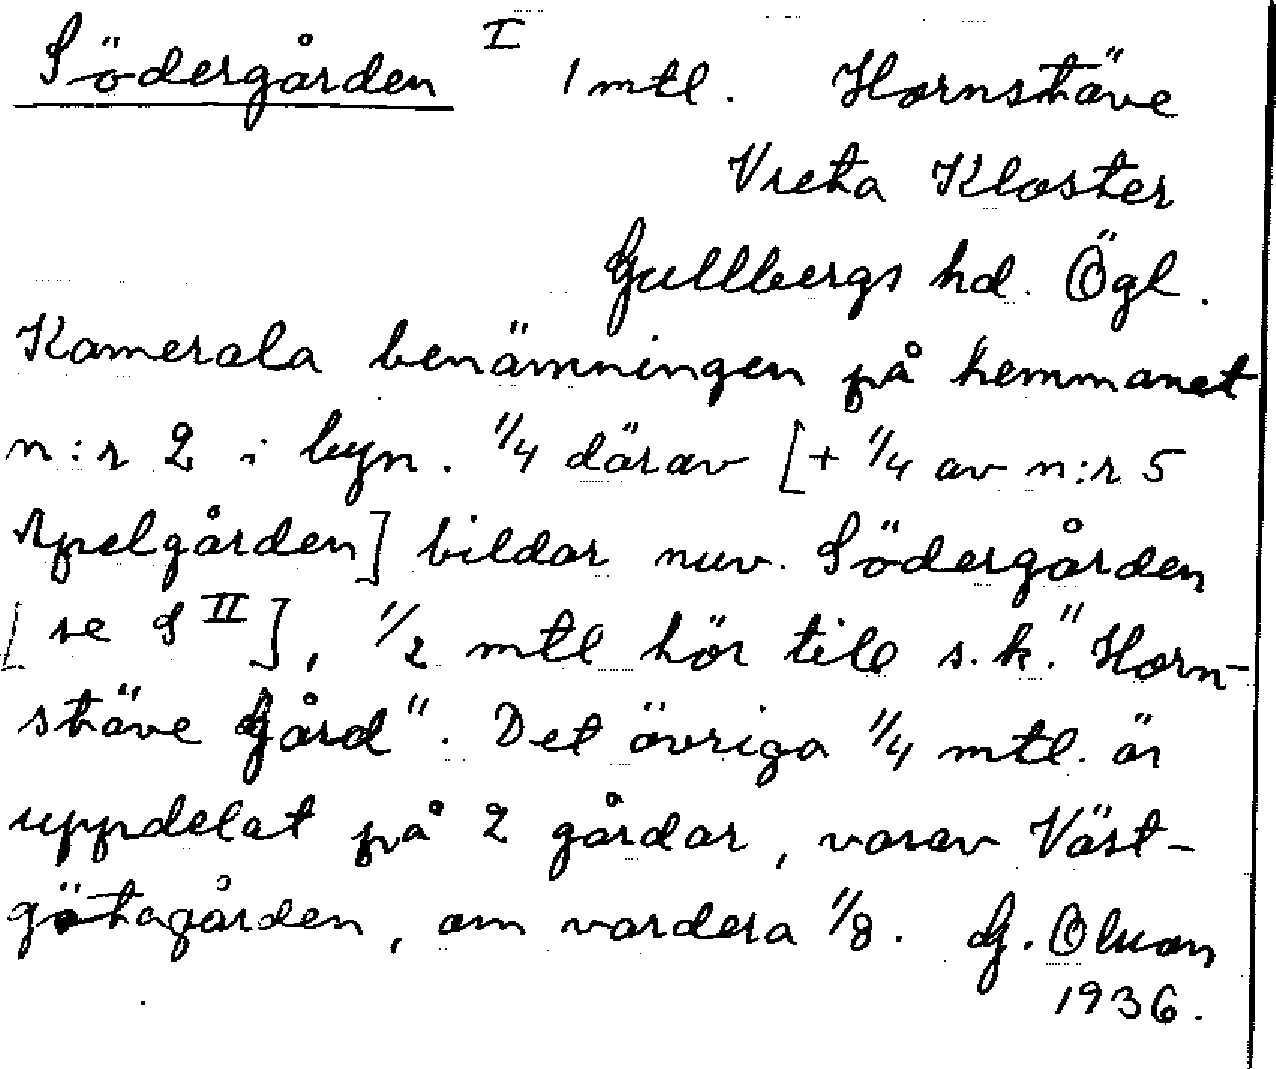 Södergården I 1 mtl. Hornstäve
Vreta Kloster
Gullbergs hd. Ögl.
Kamerala benämningen på hemmanet
n:r 2 i byn. 1/4 därav [+ 1/4 av n:r 5
Apelgården] bildar nuv. Södergården
[se S II], 1/2 mtl hör till s.k. "Horn-
stäve Gård". Det övriga 1/4 mtl. är
uppdelat på 2 gårdar, varav Väst-
götagården, om vardera 1/8. G. Olson
1936.